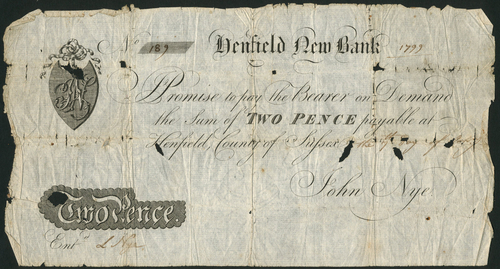 No 189 Henfield New Bank 1799
I Promise to pay the Bearer on Demand
the Sum of TWO PENCE payable at
Henfield, County of Sussex
John Nye
Two Pence.
Entd